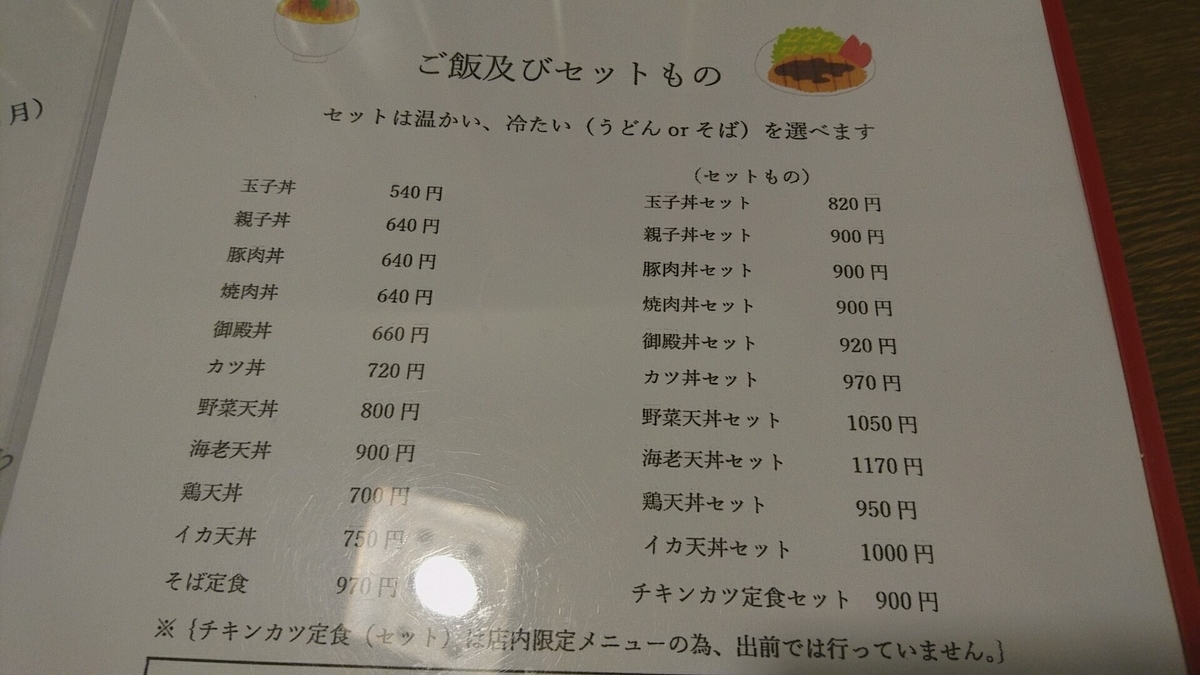 月）
ご飯及びセットもの
セットは温かい、冷たい（うどん or そば）を選べます
玉子丼 540 円
親子丼 640 円
豚肉丼 640 円
焼肉丼 640 円
御殿丼 660 円
カツ丼 720 円
野菜天丼 800 円
海老天丼 900 円
鶏天丼 700 円
イカ天丼 750 円
そば定食 970 円
（セットもの）
玉子丼セット 820 円
親子丼セット 900 円
豚肉丼セット 900 円
焼肉丼セット 900 円
御殿丼セット 920 円
カツ丼セット 970 円
野菜天丼セット 1050 円
海老天丼セット 1170 円
鶏天丼セット 950 円
イカ天丼セット 1000 円
チキンカツ定食セット 900 円
※｛チキンカツ定食（セット）は店内限定メニューの為、出前では行っていません。｝